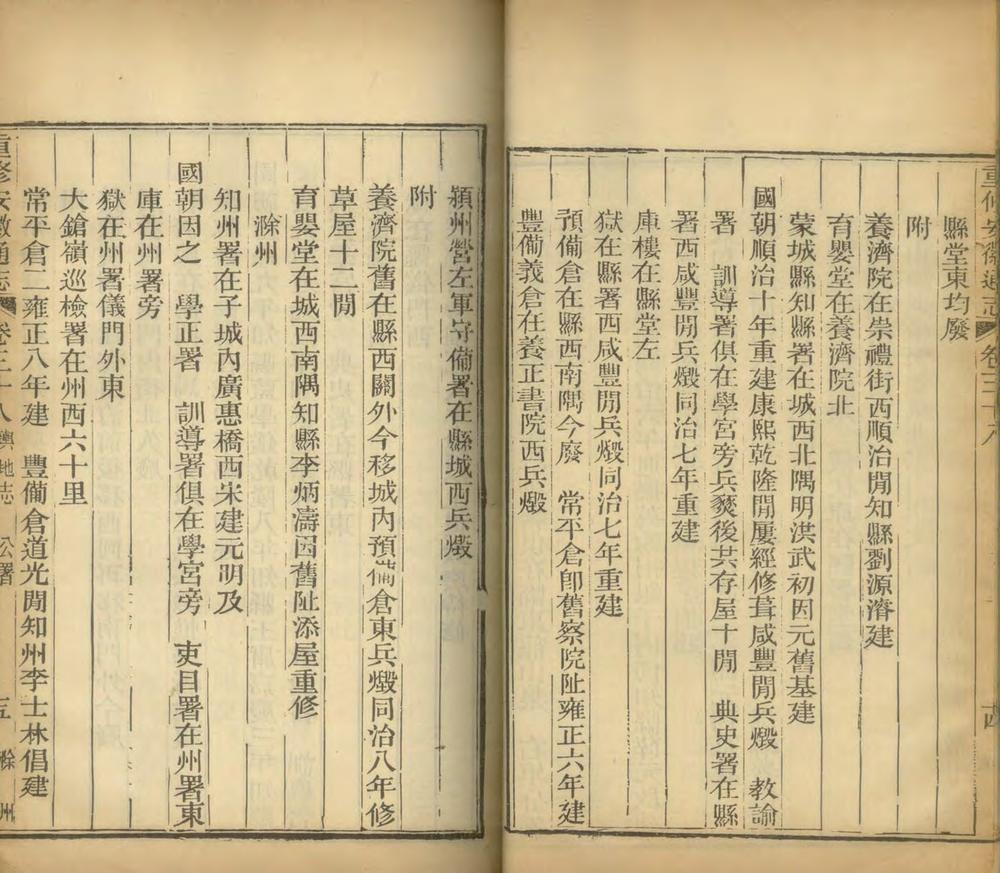 重修安徽通志 卷三十八
縣堂東均廢
附
養濟院在崇禮街西順治閒知縣劉源濬建
育嬰堂在養濟院北
蒙城縣知縣署在城西北隅明洪武初因元舊基建
國朝順治十年重建康熙乾隆閒屢經修葺咸豐閒兵燬 教諭
署 訓導署俱在學宮旁兵燹後共存屋十閒 典史署在縣
署西咸豐閒兵燬同治七年重建
庫樓在縣堂左
獄在縣署西咸豐閒兵燬同治七年重建
預備倉在縣西南隅今廢 常平倉卽舊察院阯雍正六年建
豐備義倉在養正書院西兵燬
潁州營左軍守備署在縣城西兵燬
附
養濟院舊在縣西關外今移城內預備倉東兵燬同治八年修
草屋十二閒
育嬰堂在城西南隅知縣李炳濤因舊阯添屋重修
滁州
知州署在子城內廣惠橋西宋建元明及
國朝因之 學正署 訓導署俱在學宮旁 吏目署在州署東
庫在州署旁
獄在州署儀門外東
大鎗嶺巡檢署在州西六十里
常平倉二雍正八年建 豐備倉道光閒知州李士林倡建
重修安徽通志 卷三十八 輿地志 公署 五 滁州